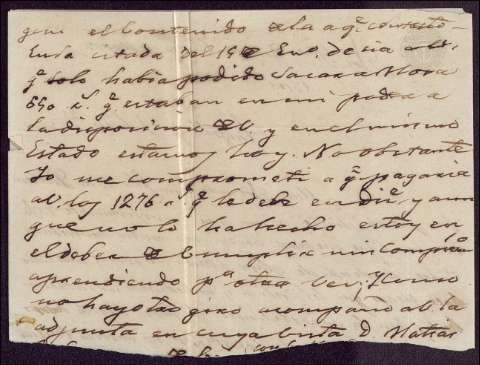 el contenido de la a q.e contesto
En la citada del 15 de En.o decia a V.
q.e solo habia podido sacar a Mora
650 r.s q.e estaban en mi poder a
la disposicion de V y en el mismo
Estado estamos hoy. No obstante
Yo me comprometi a q.e pagaria
a V. los 1276 r.s q.e le debe en dic.e y aun
que no lo ha hecho estoy en
el deber de cumplir mi compromiso
aprendiendo p.a otra vez; Y como
no hay otro giro acompaño a V. la
adjunta en cuya vista D Matias